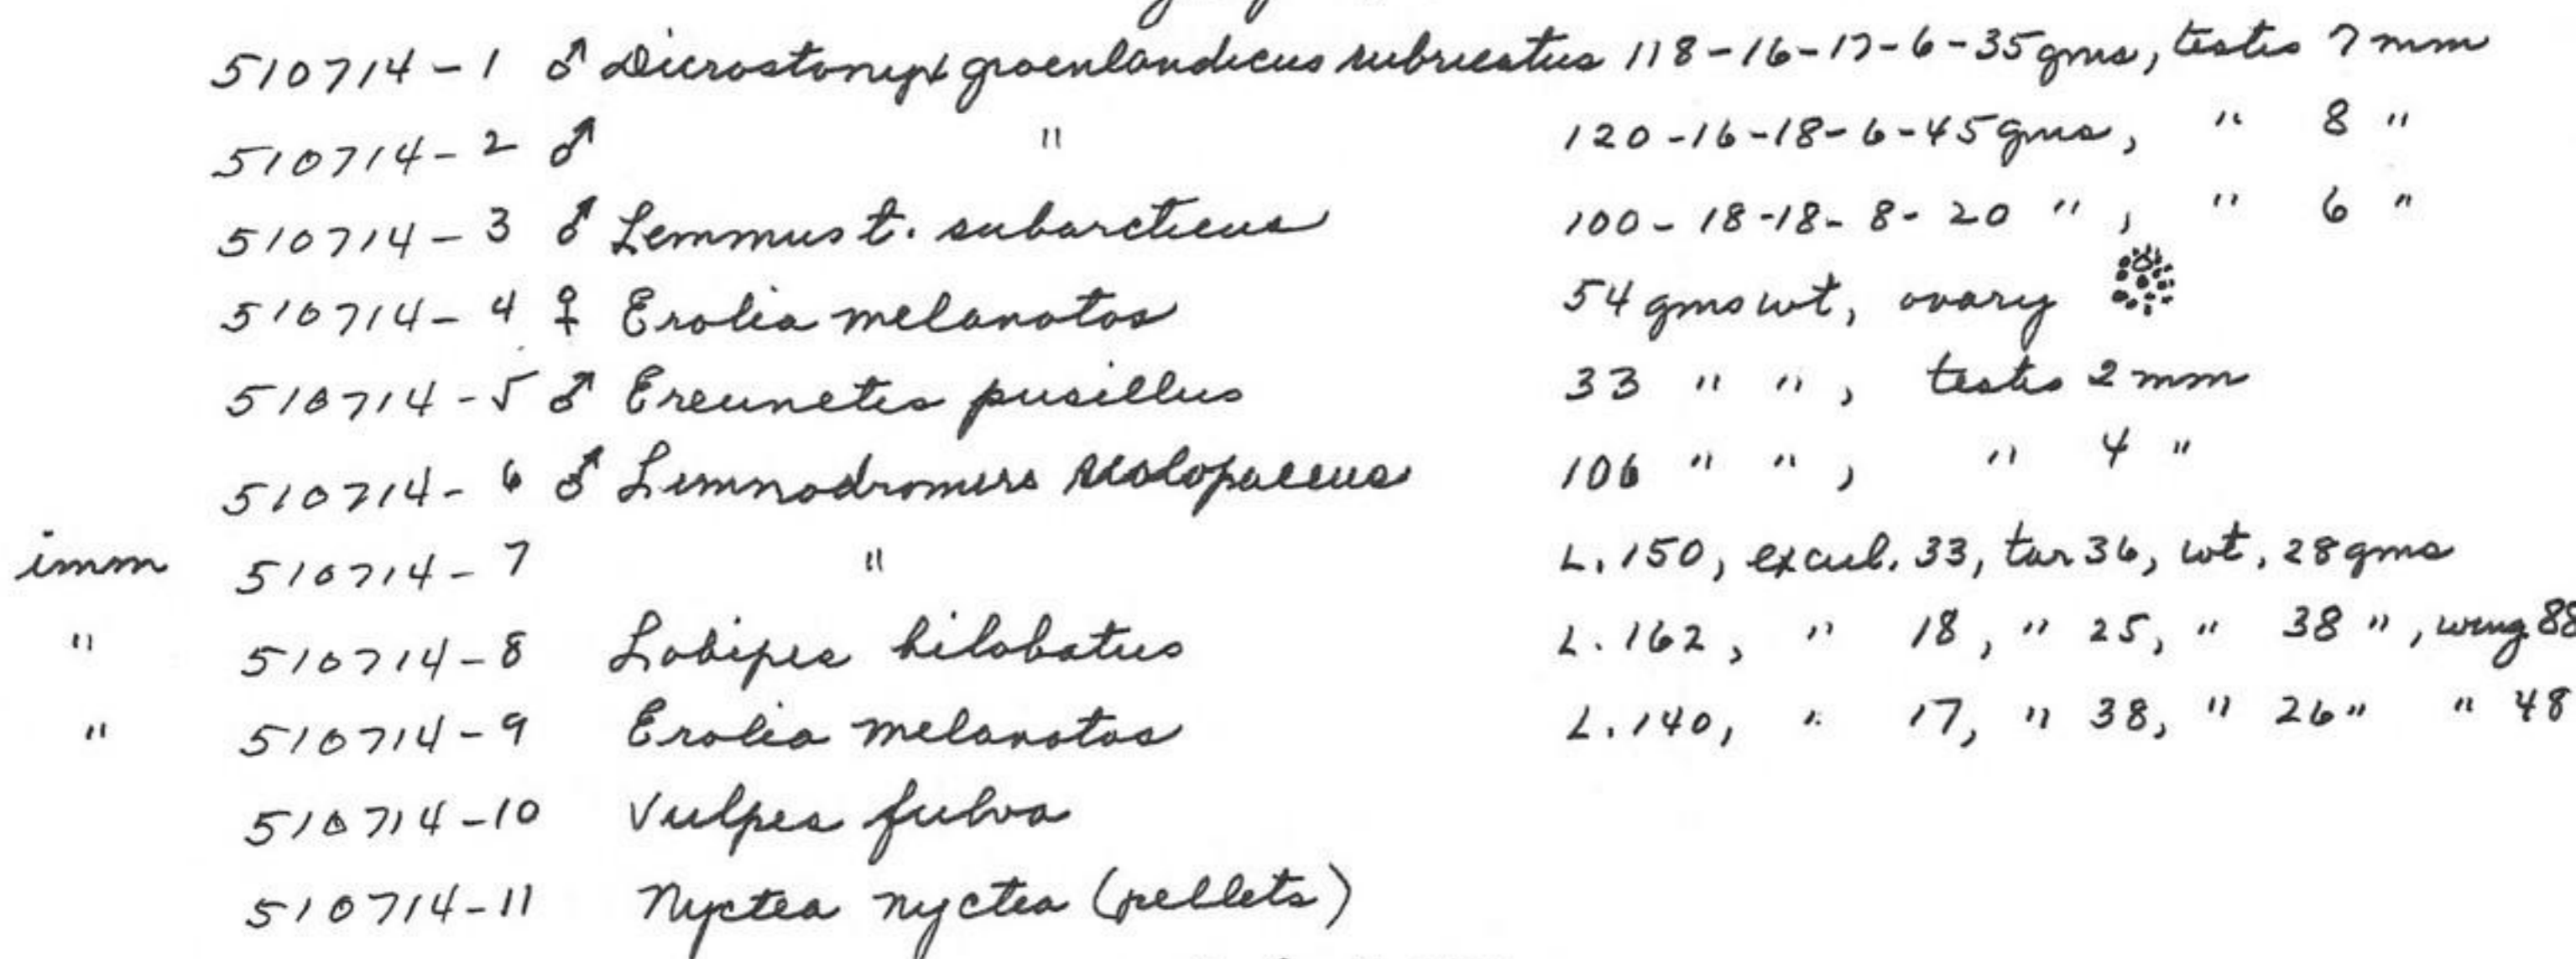 510714-1 ♂ Dicrostonyx groenlandicus rubricatus 118-16-17-6-35gms, testis 7mm
510714-2 ♂ " 120-16-18-6-45gms, " 8 "
510714-3 ♂ Lemmus t. subarcticus 100-18-18-8-20 ", " 6 "
510714-4 ♀ Erolia melanotos 54 gms wt, ovary
510714-5 ♂ Ereunetes pusillus 33 " ", testis 2mm
510714-6 ♂ Limnodromus scolopaceus 106 " ", " 4 "
imm 510714-7 " L. 150, excul. 33, tar 36, wt. 28gms
" 510714-8 Lobipes bilobatus L. 162, " 18, " 25, " 38 ", wing 88
" 510714-9 Erolia melanotos L. 140, " 17, " 38, " 26 " " 48
510714-10 Vulpes fulva
510714-11 Nyctea nyctea (pellets)